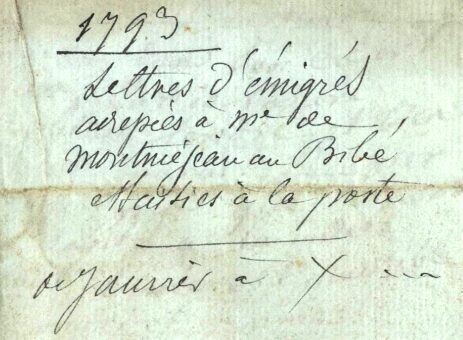 1793
Lettres d'émigrés
adressées à me de
montméjean au Bibé
Saisies à la poste
de Janvier à X